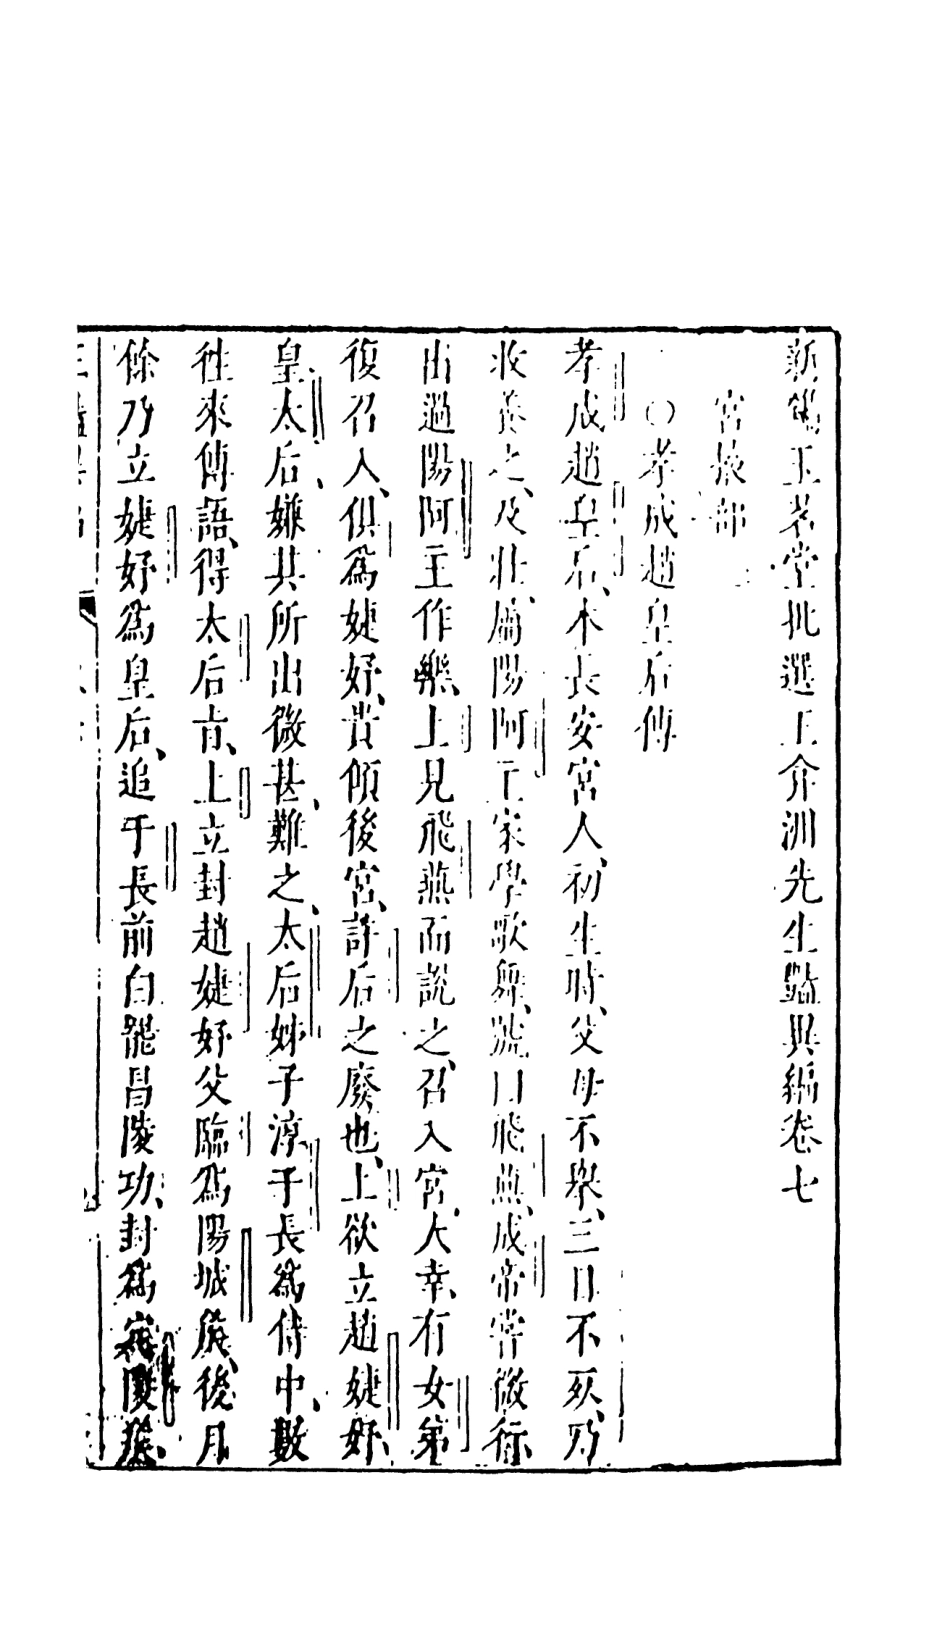 新鐫玉茗堂批選王弇洲先生豔異編卷七
宮掖部
○孝成趙皇后傳
孝成趙皇后、本長安宮人、初生時、父母不舉、三日不死、乃
收養之、及壯、屬陽阿主家學歌舞、號曰飛燕、成帝嘗微行、
出過陽阿主作樂、上見飛燕而說之、召入宮、大幸、有女弟
復召入、俱爲婕妤、貴傾後宮、許后之廢也、上欲立趙婕妤、
皇太后、嫌其所出微甚、難之、太后姊子淳于長爲侍中、數
往來傳語、得太后旨、上立封趙婕妤父臨爲陽城侯、後月
餘乃立婕妤爲皇后、追于長前白罷昌陵功、封爲定陵侯、